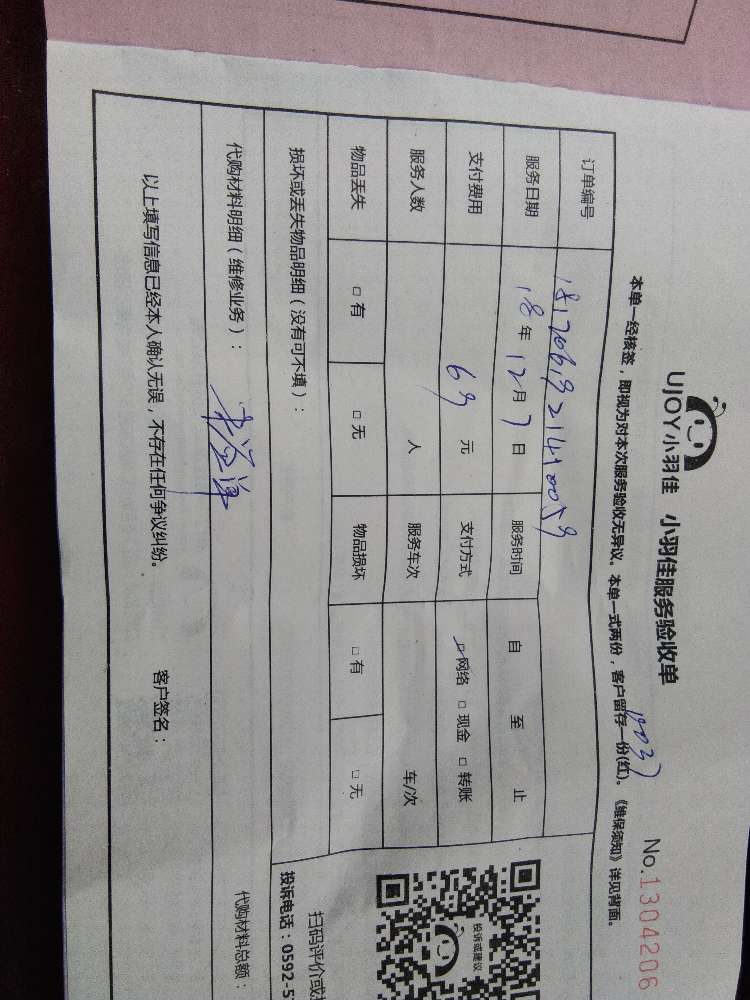 UJOY小羽佳 小羽佳服务验收单 No.1304206
本单一经核签，即视为对本次服务验收无异议。本单一式两份，客户留存一份(红)。《维保须知》详见背面。
订单编号
服务日期 18年12月7日 服务时间 自 至 止
支付费用 69元 支付方式 网络 □ 现金 □ 转账
服务人数 人 服务车次 车/次
物品丢失 □ 有 □ 无 物品损坏 □ 有 □ 无
损坏或丢失物品明细（没有可不填）：
代购材料明细（维修业务）： 代购材料总额：
以上填写信息已经本人确认无误，不存在任何争议纠纷。 客户签名：
投诉或建议
扫码评价或
投诉电话：0592-5